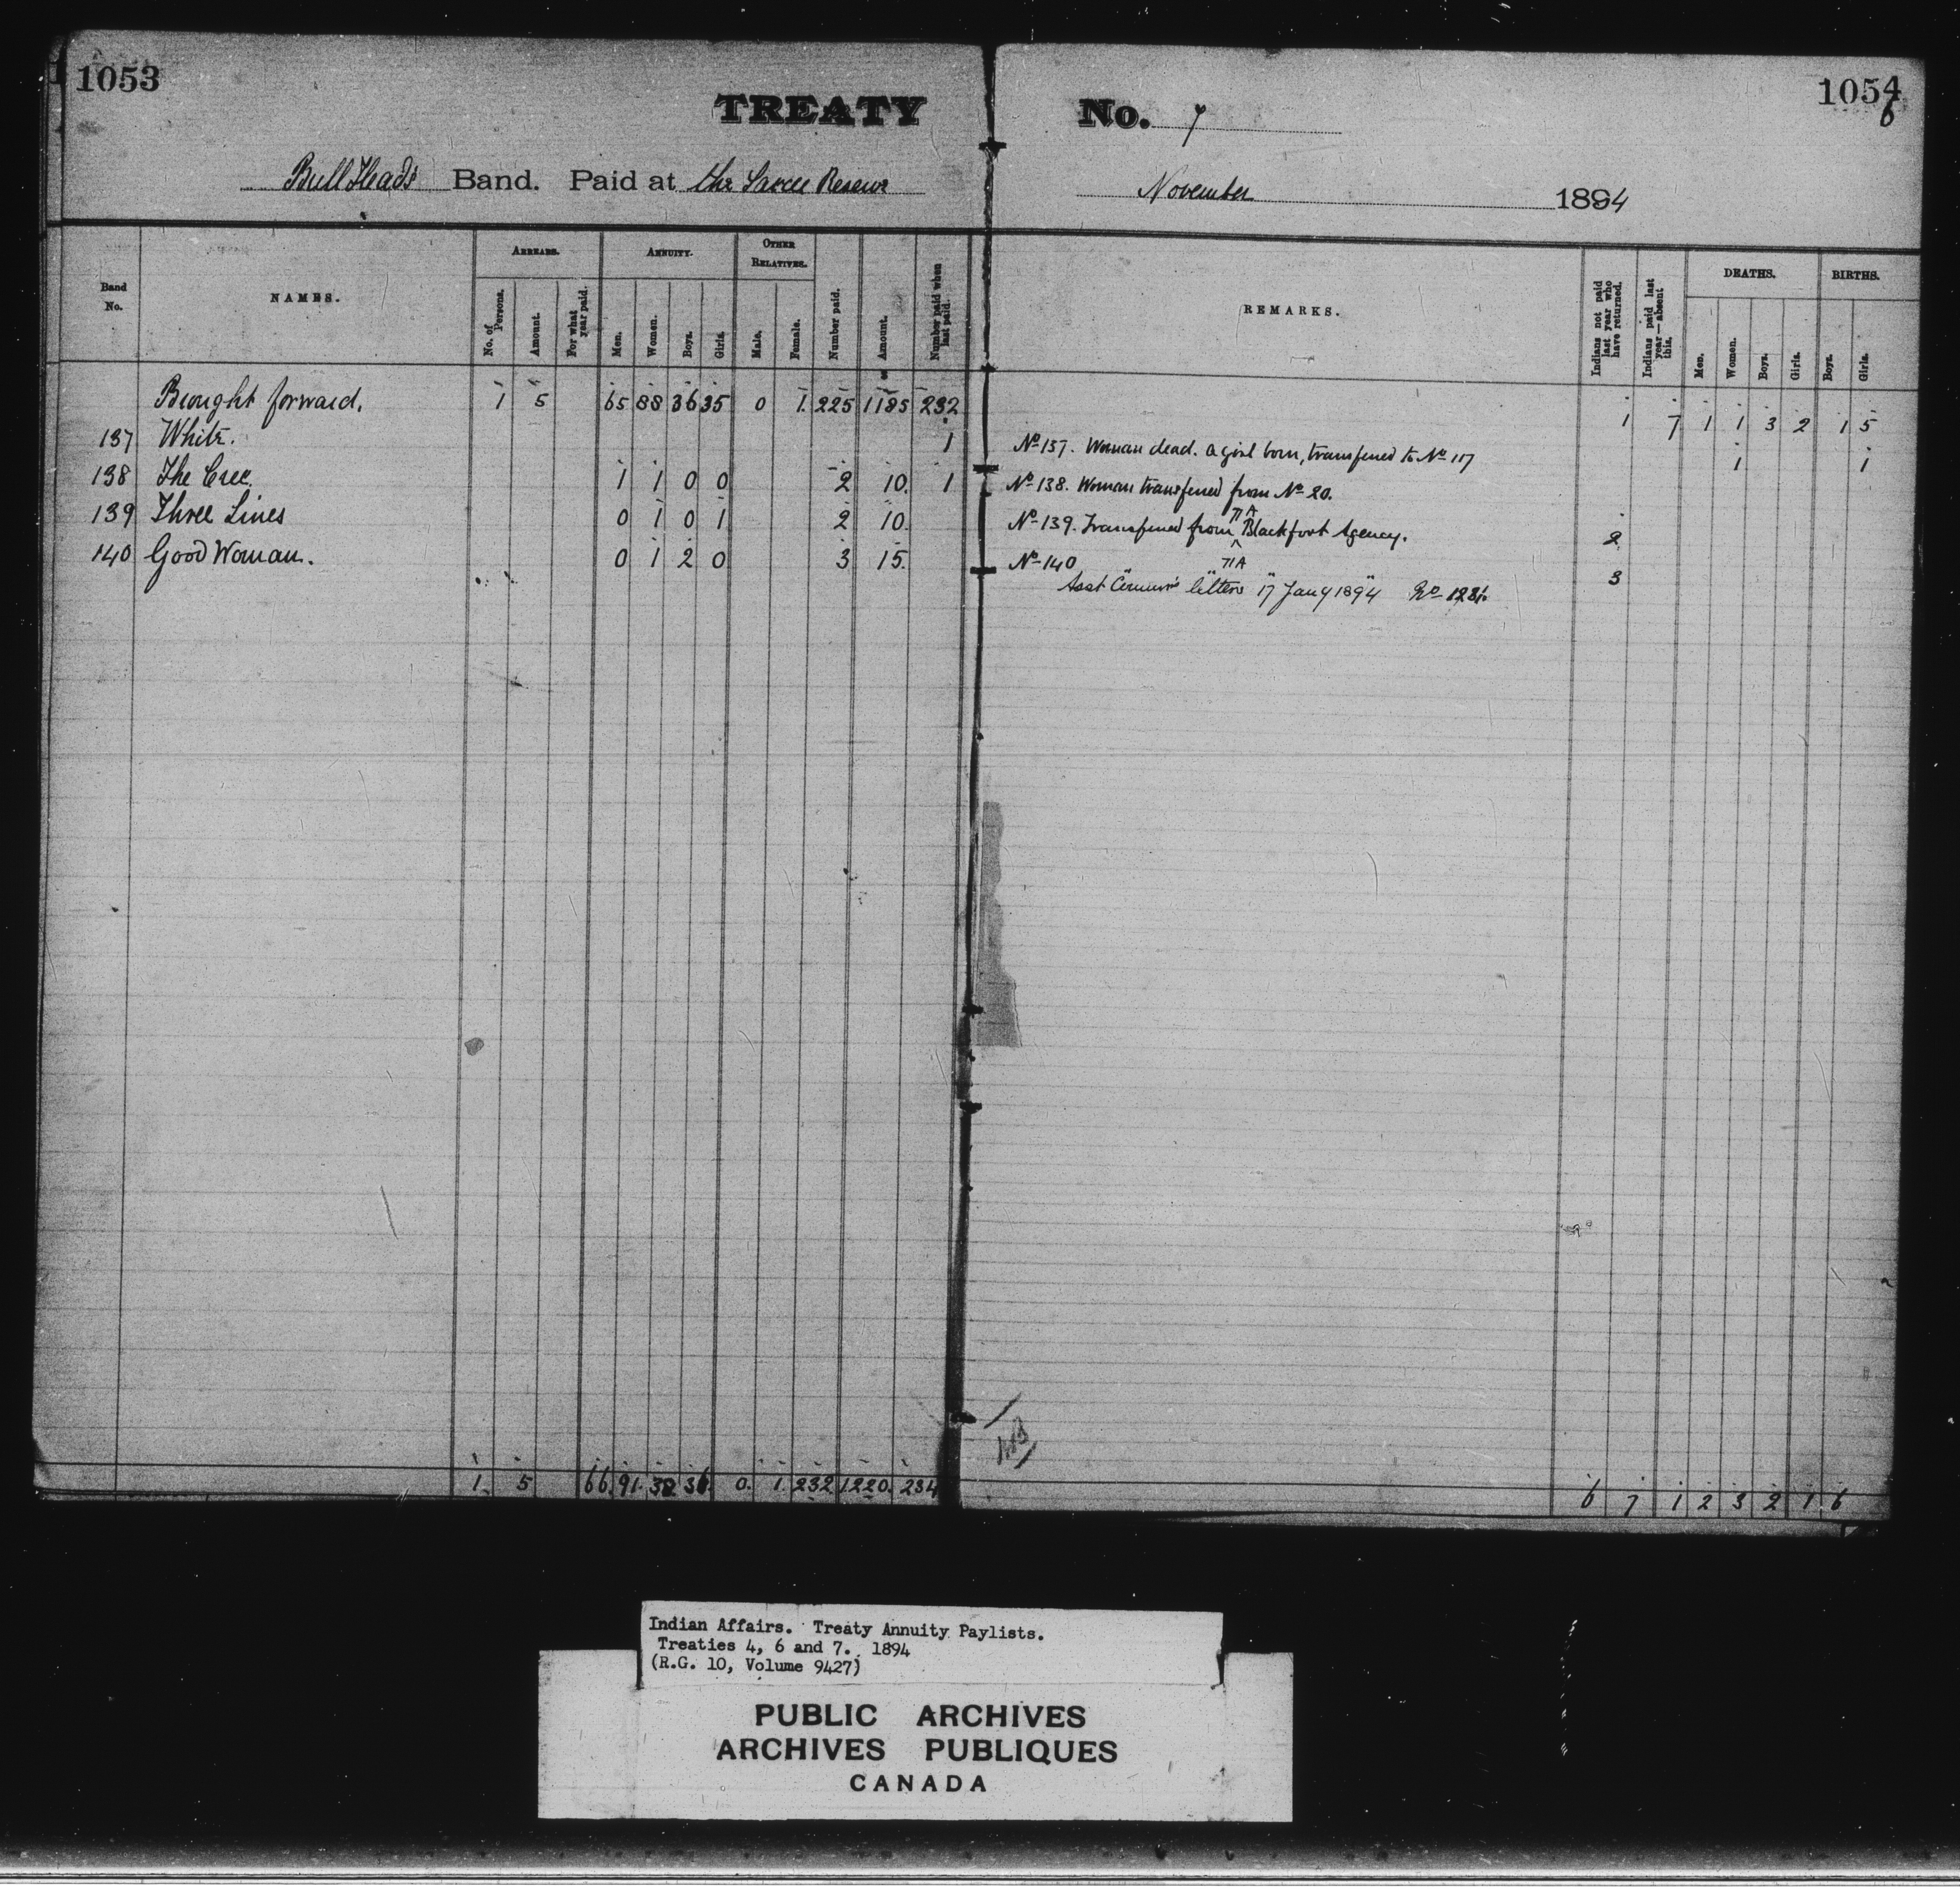 1053
1054
6
TREATY No. 7
Bull Head's Band. Paid at the Sarcee Reserve November 1894
Band No.
NAMES.
ARREARS.
No. of Persons.
Amount.
For what year paid.
ANNUITY.
Men.
Women.
Boys.
Girls.
OTHER RELATIVES.
Male.
Female.
Number paid.
Amount.
Number paid when last paid.
REMARKS.
Indians not paid last year who have returned.
Indians paid last year—absent this.
DEATHS.
Men.
Women.
Boys.
Girls.
BIRTHS.
Boys.
Girls.
Brought forward. 1 5 65 88 36 35 0 1. 225 1185 232 1 7 1 1 3 2 1 5
137 White. 1 No 137. Woman dead. a girl born, transferred to No 117 1 1
138 The Cree. 1 1 0 0 2 10. 1 No 138. Woman transferred from No 20.
139 Three Lines 0 1 0 1 2 10. No 139. Transferred from Blackfoot Agency. 2
140 Good Woman. 0 1 2 0 3 15. No 140 " " " 3
Asst Commr's letters 17 Jany 1894
1. 5 66. 91. 38 36. 0. 1. 232 1220. 234 6 7 1 2 3 2 1. 6
Indian Affairs. Treaty Annuity Paylists.
Treaties 4, 6 and 7. 1894
(R.G. 10, Volume 9427)
PUBLIC ARCHIVES
ARCHIVES PUBLIQUES
CANADA